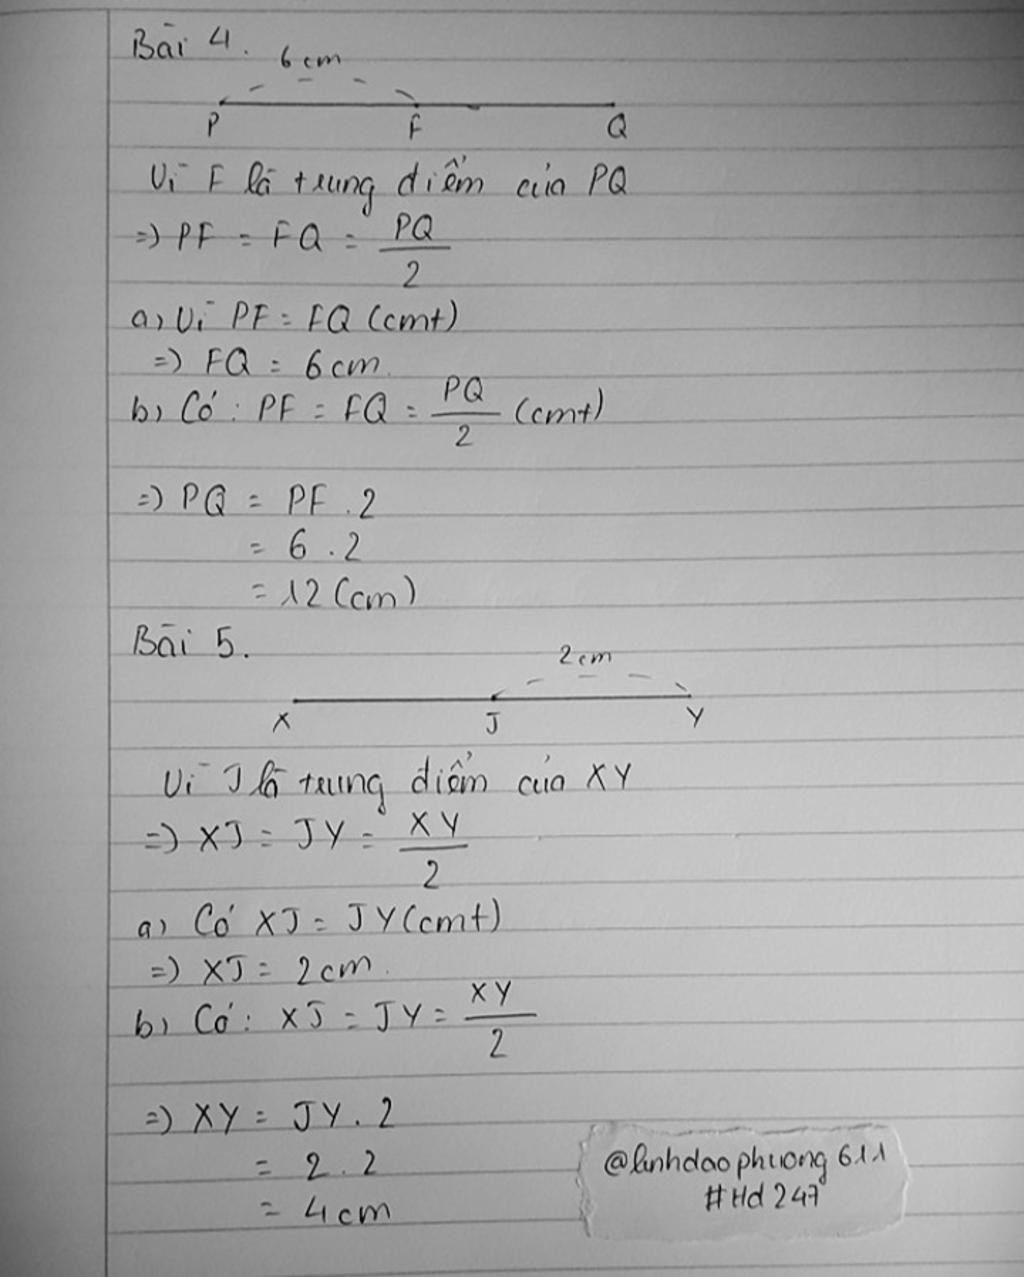 Bài 4.
6cm
P F Q
Vì F là trung điểm của PQ
=> PF = FQ = PQ/2
a, Vì PF = FQ (cmt)
=> FQ = 6cm.
b, Có : PF = FQ = PQ/2 (cmt)
=> PQ = PF . 2
= 6 . 2
= 12 (cm)
Bài 5.
2cm
X J Y
Vì J là trung điểm của XY
=> XJ = JY = XY/2
a, Có XJ = JY (cmt)
=> XJ = 2cm.
b, Có : XJ = JY = XY/2
=> XY = JY . 2
= 2 . 2
= 4cm
@linhdaophuong611
#Hd247